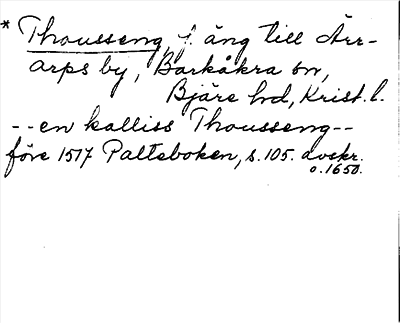 * Thousseng, f. äng till Ärr-
arps by, Barkåkra sn,
Bjäre hd, Krist. l.
-- en kalliss Thousseng --
före 1517 Palteboken, s. 105. avskr.
o. 1650.